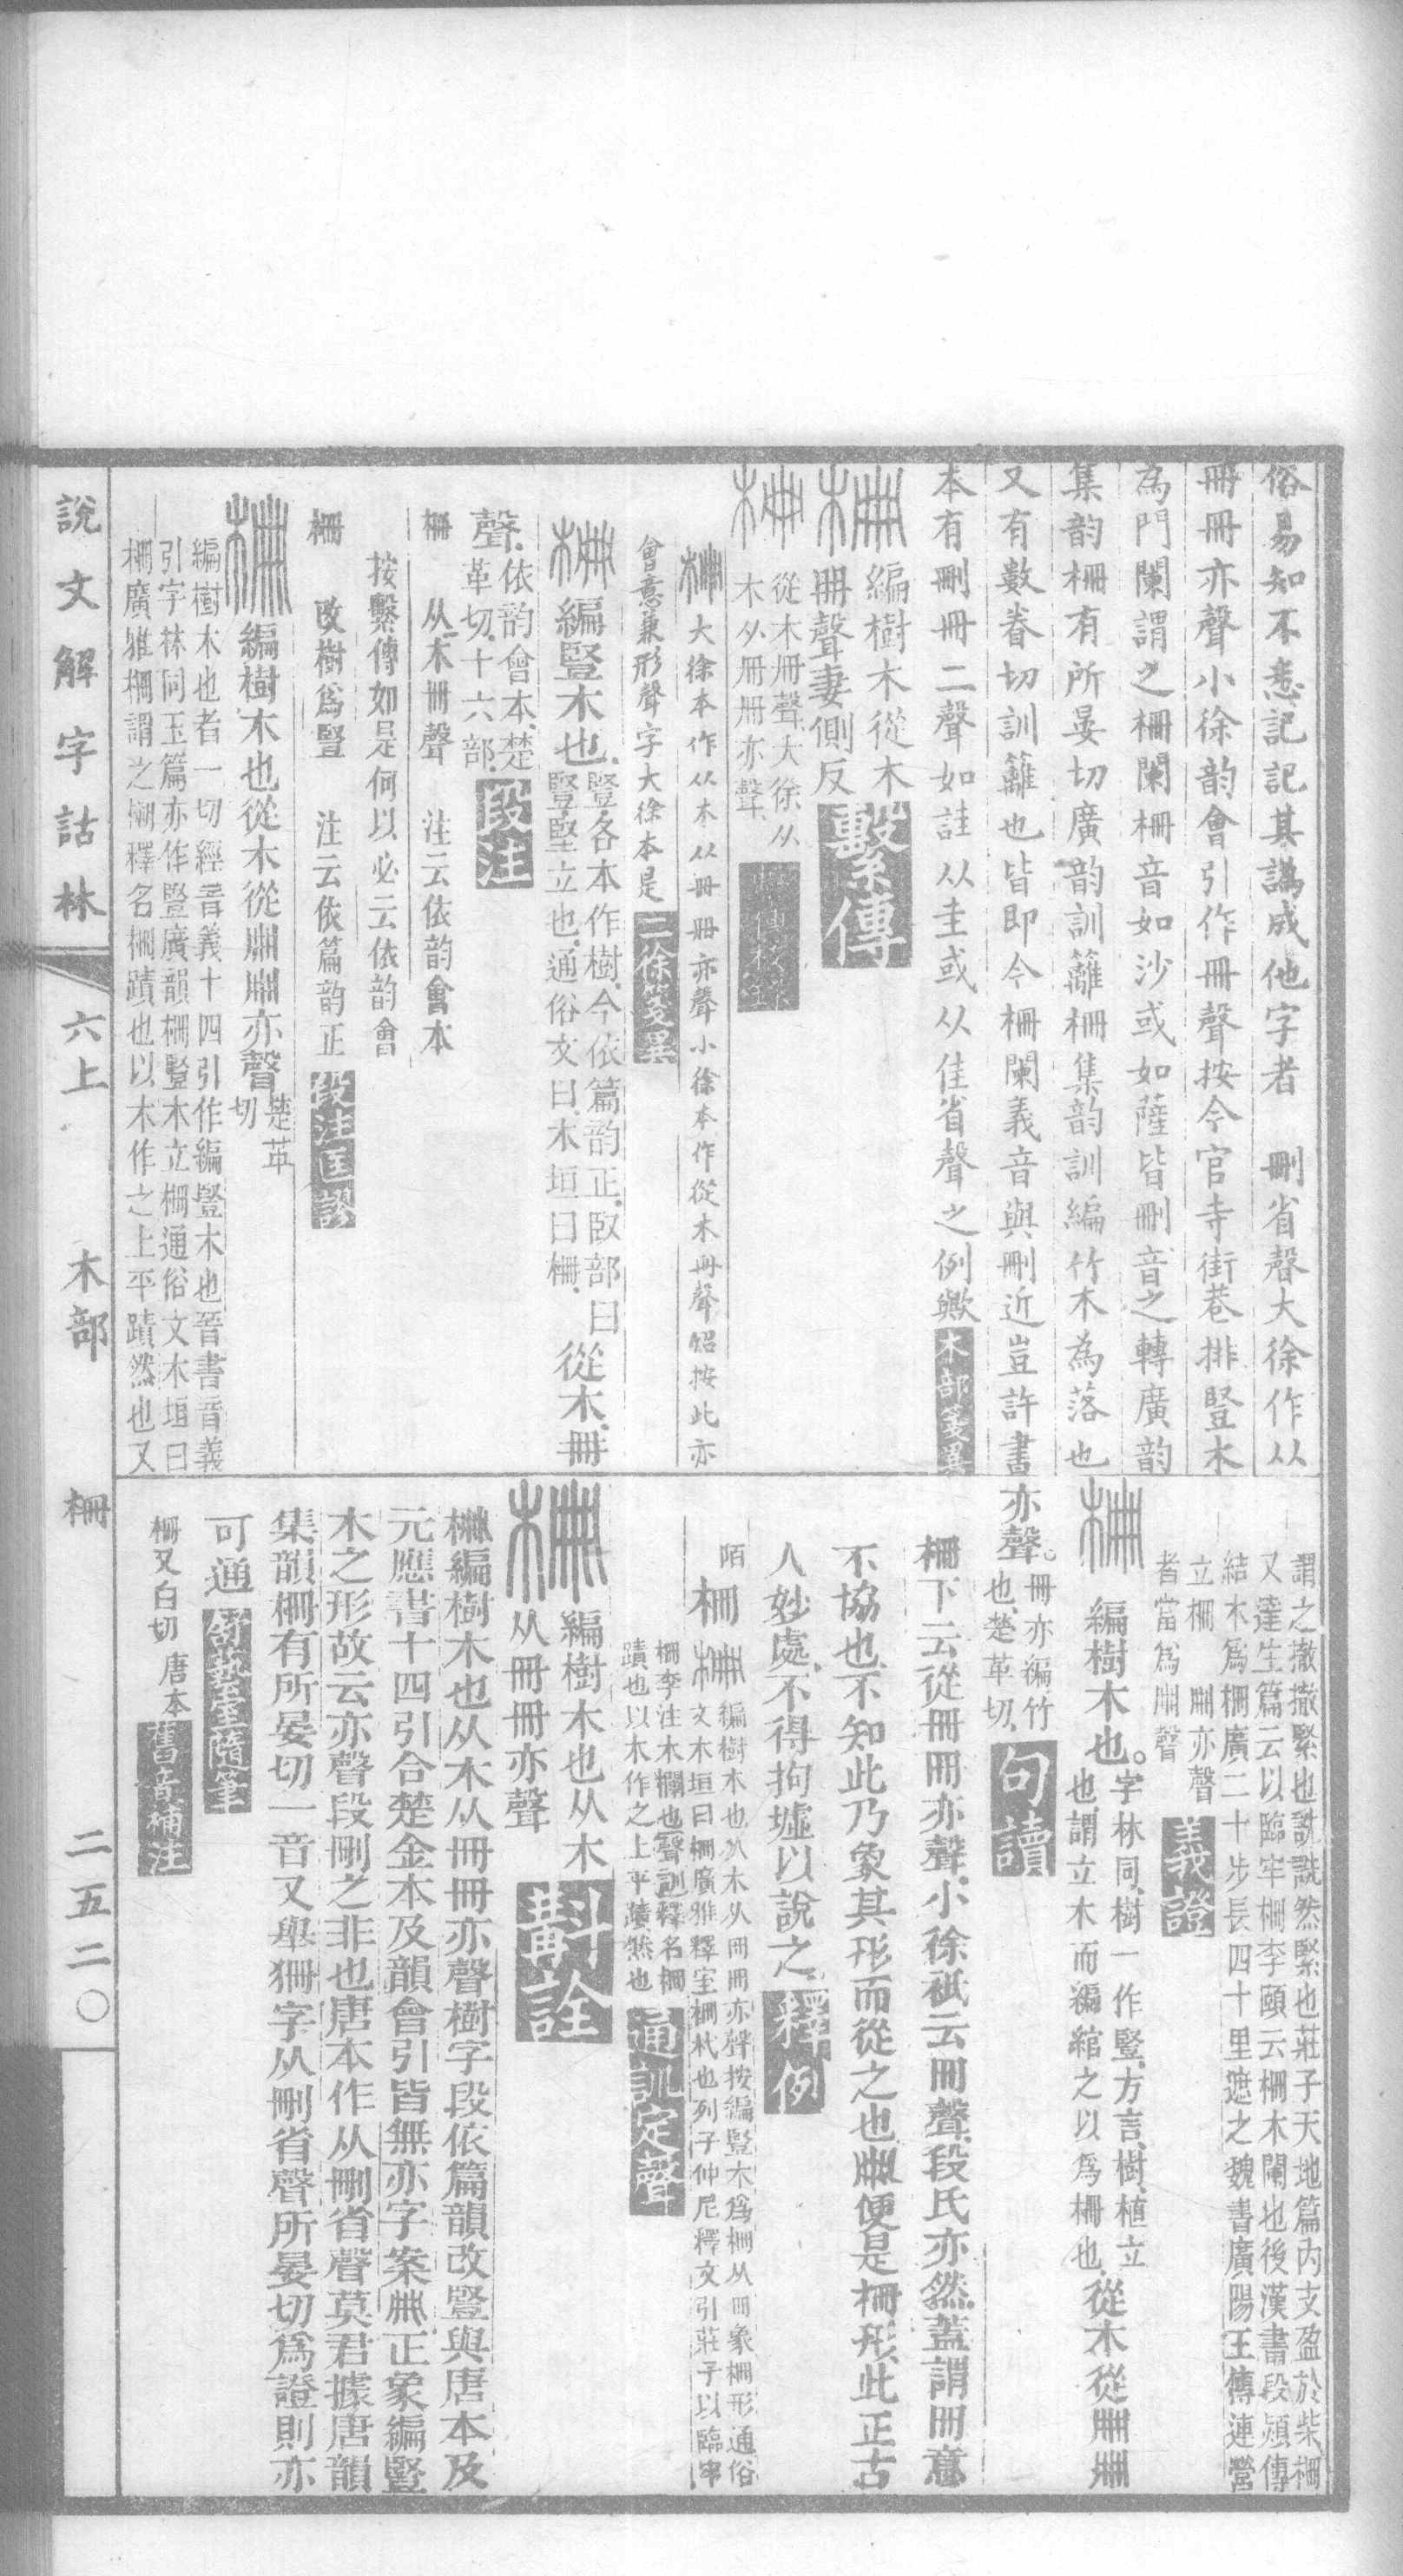 俗易知不悉記記其譌成他字者　刪省聲大徐作从
冊冊亦聲小徐韵會引作冊聲按今官寺街巷排豎木
為門闌謂之柵闌柵音如沙或如薩皆刪音之轉廣韵
集韵柵有所晏切廣韵訓籬柵集韵訓編竹木為落也
又有數眷切訓籬也皆即今柵闌義音與刪近豈許書
本有刪冊二聲如詿从圭或从佳省聲之例歟 木部箋異
柵 編樹木從木
冊聲妻側反 繫傳
柵 從木冊聲大徐从
木从冊冊亦聲
柵 大徐本作从木从冊冊亦聲小徐本作從木冊聲紹按此亦
會意兼形聲字大徐本是 二徐箋異
柵 編豎木也
豎各本作樹今依篇韵正臤部曰
豎堅立也通俗文曰木垣曰柵
從木冊
聲
依韵會本楚
革切十六部
段注
柵　从木冊聲　注云依韵會本
按繫傳如是何以必云依韵會
柵　改樹爲豎　注云依篇韵正 段注匡謬
柵 編樹木也從木從冊冊亦聲 楚革
切
編樹木也者一切經音義十四引作編豎木也晉書音義
引字林同玉篇亦作豎廣韻柵豎木立柵通俗文木垣曰
柵廣雅柵謂之柵釋名柵蹟也以木作之上平蹟然也又
謂之撤撤緊也詵詵然緊也莊子天地篇內支盈於柴柵
又達生篇云以臨牢柵李頤云柵木闌也後漢書段熲傳
結木爲柵廣二十步長四十里遮之魏書廣陽王傳連營
立柵　冊亦聲
者當爲冊聲
義證
柵 編樹木也
字林同樹一作豎方言樹植立
也謂立木而編綰之以爲柵也
從木從冊冊
亦聲
冊亦編竹
也楚革切
句讀
柵下云從冊冊亦聲小徐祇云冊聲段氏亦然蓋謂冊意
不協也不知此乃象其形而從之也冊便是柵形此正古
人妙處不得拘墟以說之 釋例
陌 柵
柵 編樹木也从木从冊冊亦聲按編豎木爲柵从冊象柵形通俗
文木垣曰柵廣雅釋室柵杙也列子仲尼釋文引莊子以臨牢
柵李注木欄也聲訓釋名柵
蹟也以木作之上平蹟然也
通訓定聲
柵 編樹木也从木
从冊冊亦聲 斠詮
柵編樹木也从木从冊冊亦聲樹字段依篇韻改豎與唐本及
元應書十四引合楚金本及韻會引皆無亦字案冊正象編豎
木之形故云亦聲段刪之非也唐本作从刪省聲莫君據唐韻
集韻柵有所晏切一音又舉狦字从刪省聲所晏切爲證則亦
可通
柵又白切　唐本 舊音補注
說文解字詁林　六上　木部　柵　二五二〇